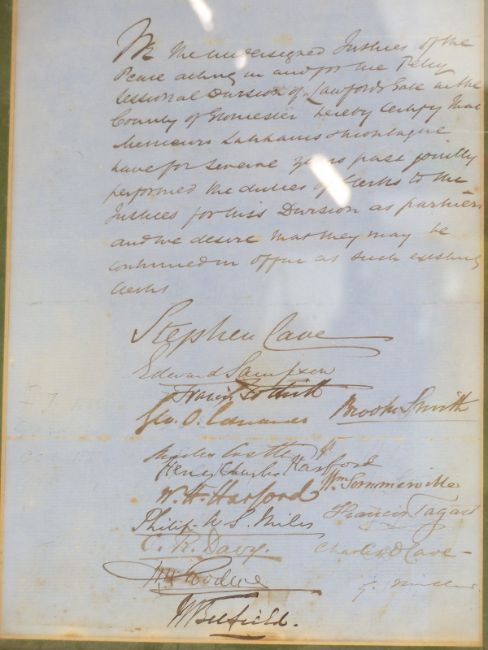 We the undersigned Justices of the
Peace acting in and for the Petty
Sessional Division of Lawfords Gate in the
County of Gloucester hereby Certify that
Messieurs Latham & Montague
have for several years past jointly
performed the duties of Clerks to the
Justices for this Division as partners
and we desire that they may be
continued in office as such existing
Clerks
Stephen Cave
Edward Sampson
Francis
Geo. O. Edwards Brooke Smith
Charles Castle
Henry Charles Harford
W. H. Harford Wm Sommerville
Philip W S. Miles Francis Tagart
C. R. Davy. Charles D Cave